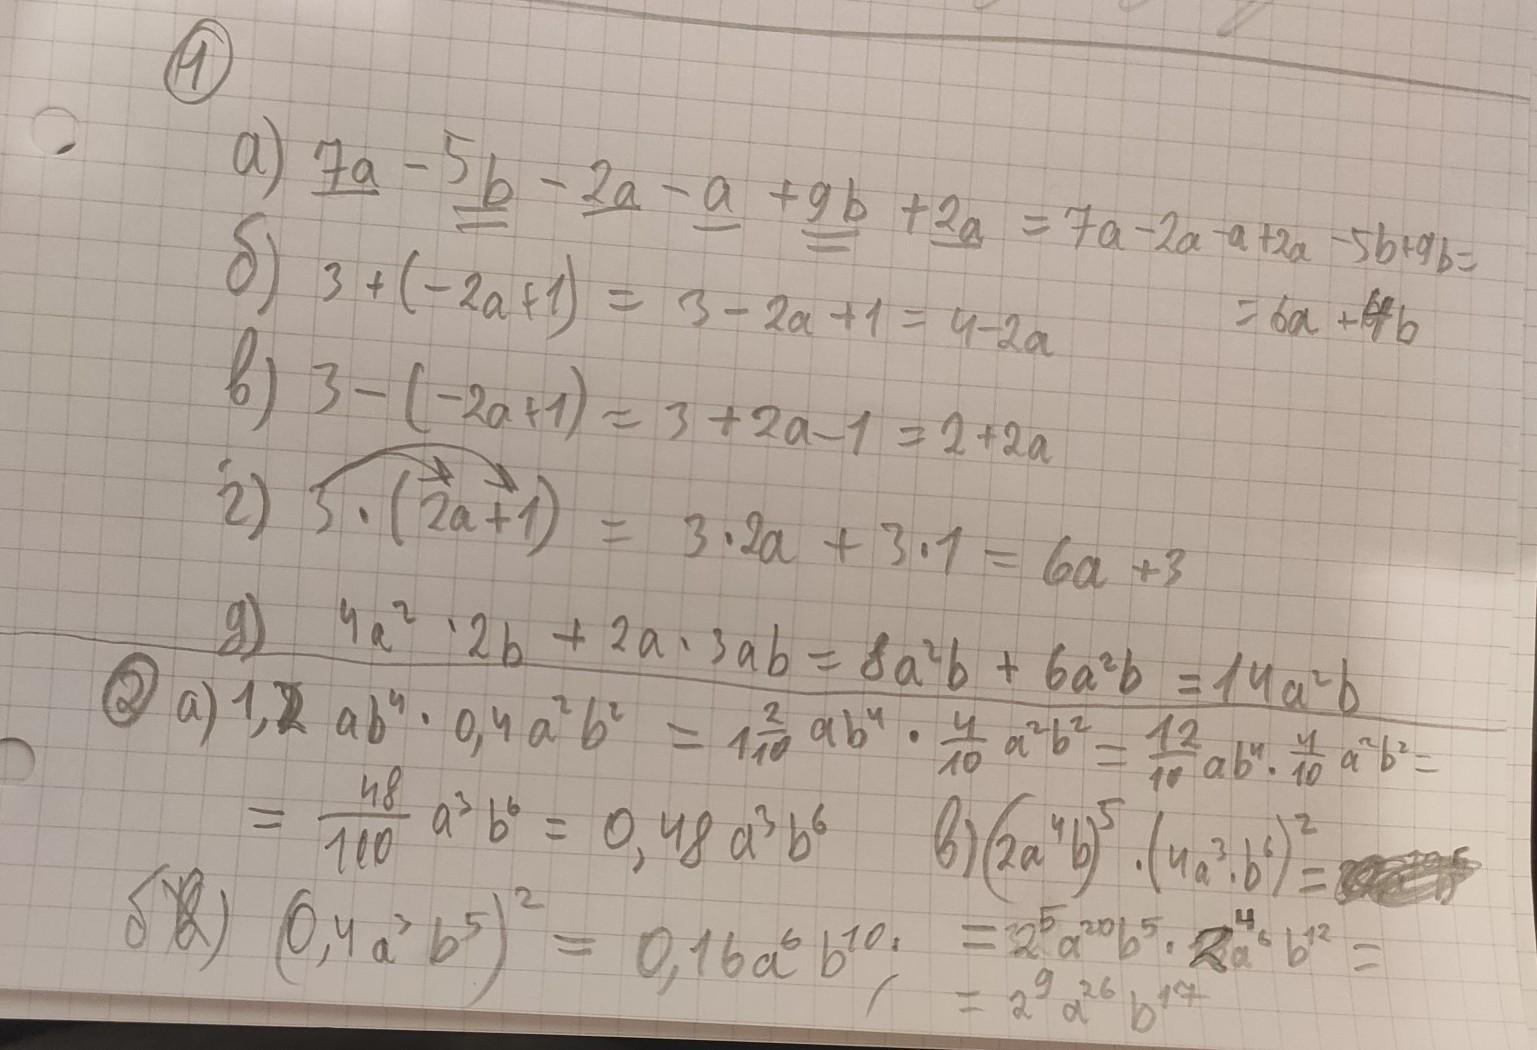 1
а) 7a - 5b - 2a - a + 9b + 2a = 7a - 2a - a + 2a - 5b + 9b =
= 6a + 4b
б) 3 + (-2a + 1) = 3 - 2a + 1 = 4 - 2a
в) 3 - (-2a + 1) = 3 + 2a - 1 = 2 + 2a
г) 3 · (2a + 1) = 3 · 2a + 3 · 1 = 6a + 3
д) 4a² · 2b + 2a · 3ab = 8a²b + 6a²b = 14a²b
2 а) 1,2 ab⁴ · 0,4a²b² = 1 2/10 ab⁴ · 4/10 a²b² = 12/10 ab⁴ · 4/10 a²b² =
= 48/100 a³b⁶ = 0,48a³b⁶
б) (0,4a³b⁵)² = 0,16a⁶b¹⁰
в) (2a⁴b)⁵ · (4a³ · b⁶)² =
= 2⁵a²⁰b⁵ · 2⁴a⁶b¹² =
= 2⁹a²⁶b¹⁷